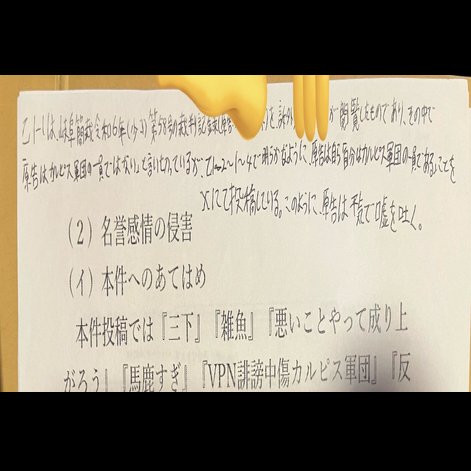 乙1-1は、岐阜簡裁令和06年(少コ)第58号の裁判記録 が閲覧したものであり、その中で
原告は「カルピス軍団の一員ではない」と言いきっているが、乙1-2~1-4で明らかなように、原告は自ら自分はカルピス軍団の一員であることを
Xにて投稿している。このように、原告は平気で嘘を吐く。
(2)名誉感情の侵害
(イ)本件へのあてはめ
本件投稿では『三下』『雑魚』『悪いことやって成り上
がろう』『馬鹿すぎ』『VPN誹謗中傷カルピス軍団』『反